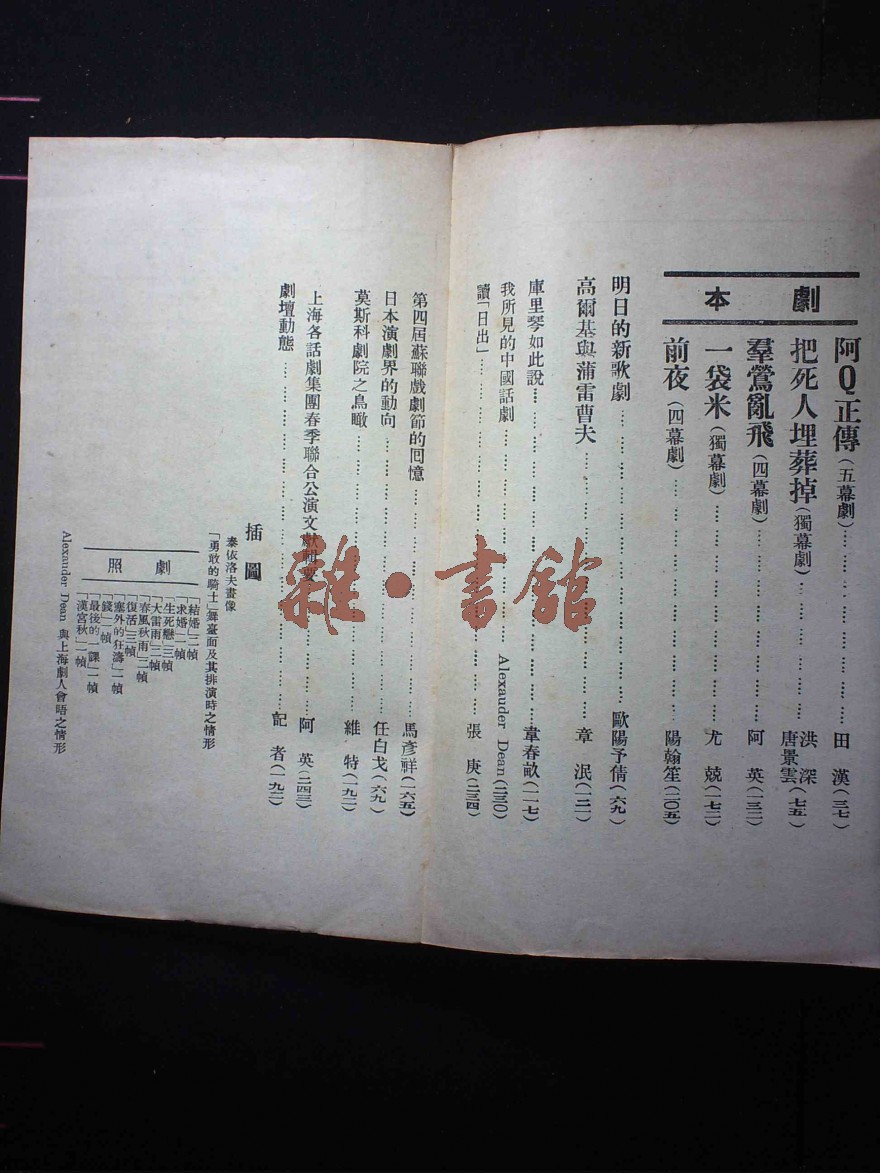 劇本
阿Q正傳(五幕劇)……田漢(三七)
把死人埋葬掉(獨幕劇)……洪深 唐景雲(七五)
羣鶯亂飛(四幕劇)……阿英(一三二)
一袋米(獨幕劇)……尤兢(一七二)
前夜(四幕劇)……陽翰笙(二〇五)
明日的新歌劇……歐陽予倩(六九)
高爾基與蒲雷曹夫……章泯(一二一)
庫里琴如此說……韋春畝(一一七)
我所見的中國話劇……Alexauder Dean
讀「日出」……張庚(二三四)
第四屆蘇聯戲劇節的回憶……馬彥祥(一六五)
日本演劇界的動向……任白戈(六九)
莫斯科劇院之鳥瞰……維特(一九二)
上海各話劇集團春季聯合公演文獻輯要……阿英(二四三)
劇壇動態……記者(一九二)
插圖
泰依洛夫畫像
「勇敢的騎士」舞臺面及其排演時之情形
劇照
「結婚」二幀
「求婚」一幀
「生死戀」三幀
「大雷雨」二幀
「春風秋雨」二幀
「復活」三幀
「塞外的狂濤」一幀
「錢」一幀
「最後的一課」一幀
「漢宮秋」一幀
Alexauder Dean 與上海劇人會晤之情形
雜·書館